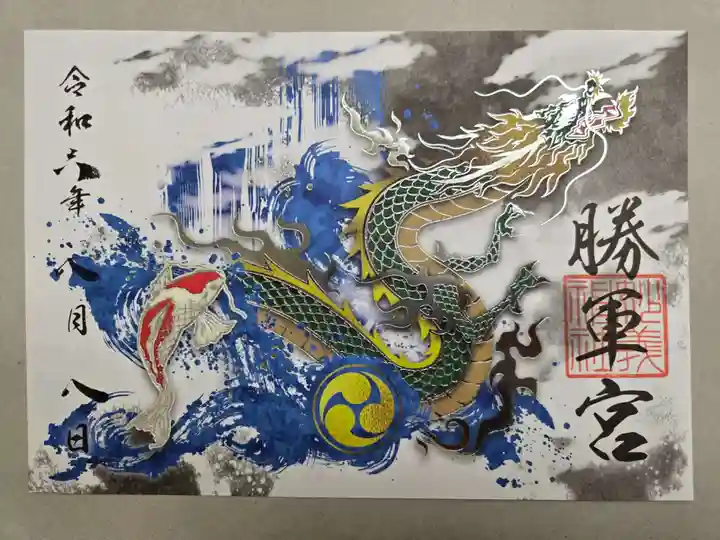 勝軍宮
神社
令和六年八月八日